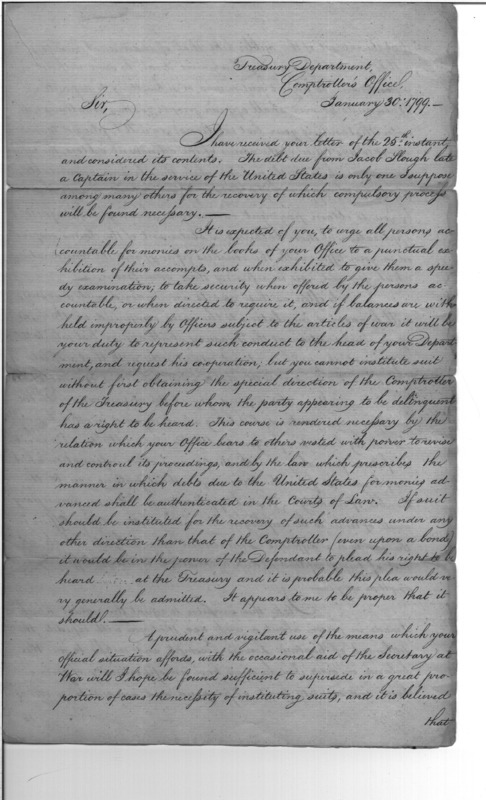 Treasury Department,
Comptroller's Office,
January 30th. 1799.—
Sir,
I have received your letter of the 25th. instant,
and considered its contents. The debt due from Jacob Slough late
a Captain in the service of the United States is only one I suppose
among many others for the recovery of which compulsory process
will be found necessary.—
It is expected of you, to urge all persons ac-
countable for monies on the books of your Office to a punctual ex-
hibition of their accompts, and when exhibited to give them a spee-
dy examination; to take security when offered by the persons ac-
countable, or when directed to require it, and if balances are with
held improperly by Officers subject to the articles of war it will be
your duty to represent such conduct to the head of your Depart
ment, and request his co-operation; but you cannot institute suit
without first obtaining the special direction of the Comptroller
of the Treasury before whom the party appearing to be delinquent
has a right to be heard. This course is rendered necessary by the
relation which your Office bears to others vested with power to revise
and controul its proceedings, and by the law which prescribes the
manner in which debts due to the United States for monies ad-
vanced shall be authenticated in the Courts of Law. If suit
should be instituted for the recovery of such advances under any
other direction than that of the Comptroller (even upon a bond)
it would be in the power of the Defendant to plead his right to be
heard at the Treasury and it is probable this plea would ve
ry generally be admitted. It appears to me to be proper that it
should.—
A prudent and vigilant use of the means which your
official situation affords, with the occasional aid of the Secretary at
War will I hope be found sufficient to supersede in a great pro-
portion of cases the necessity of instituting suits, and it is believed
that